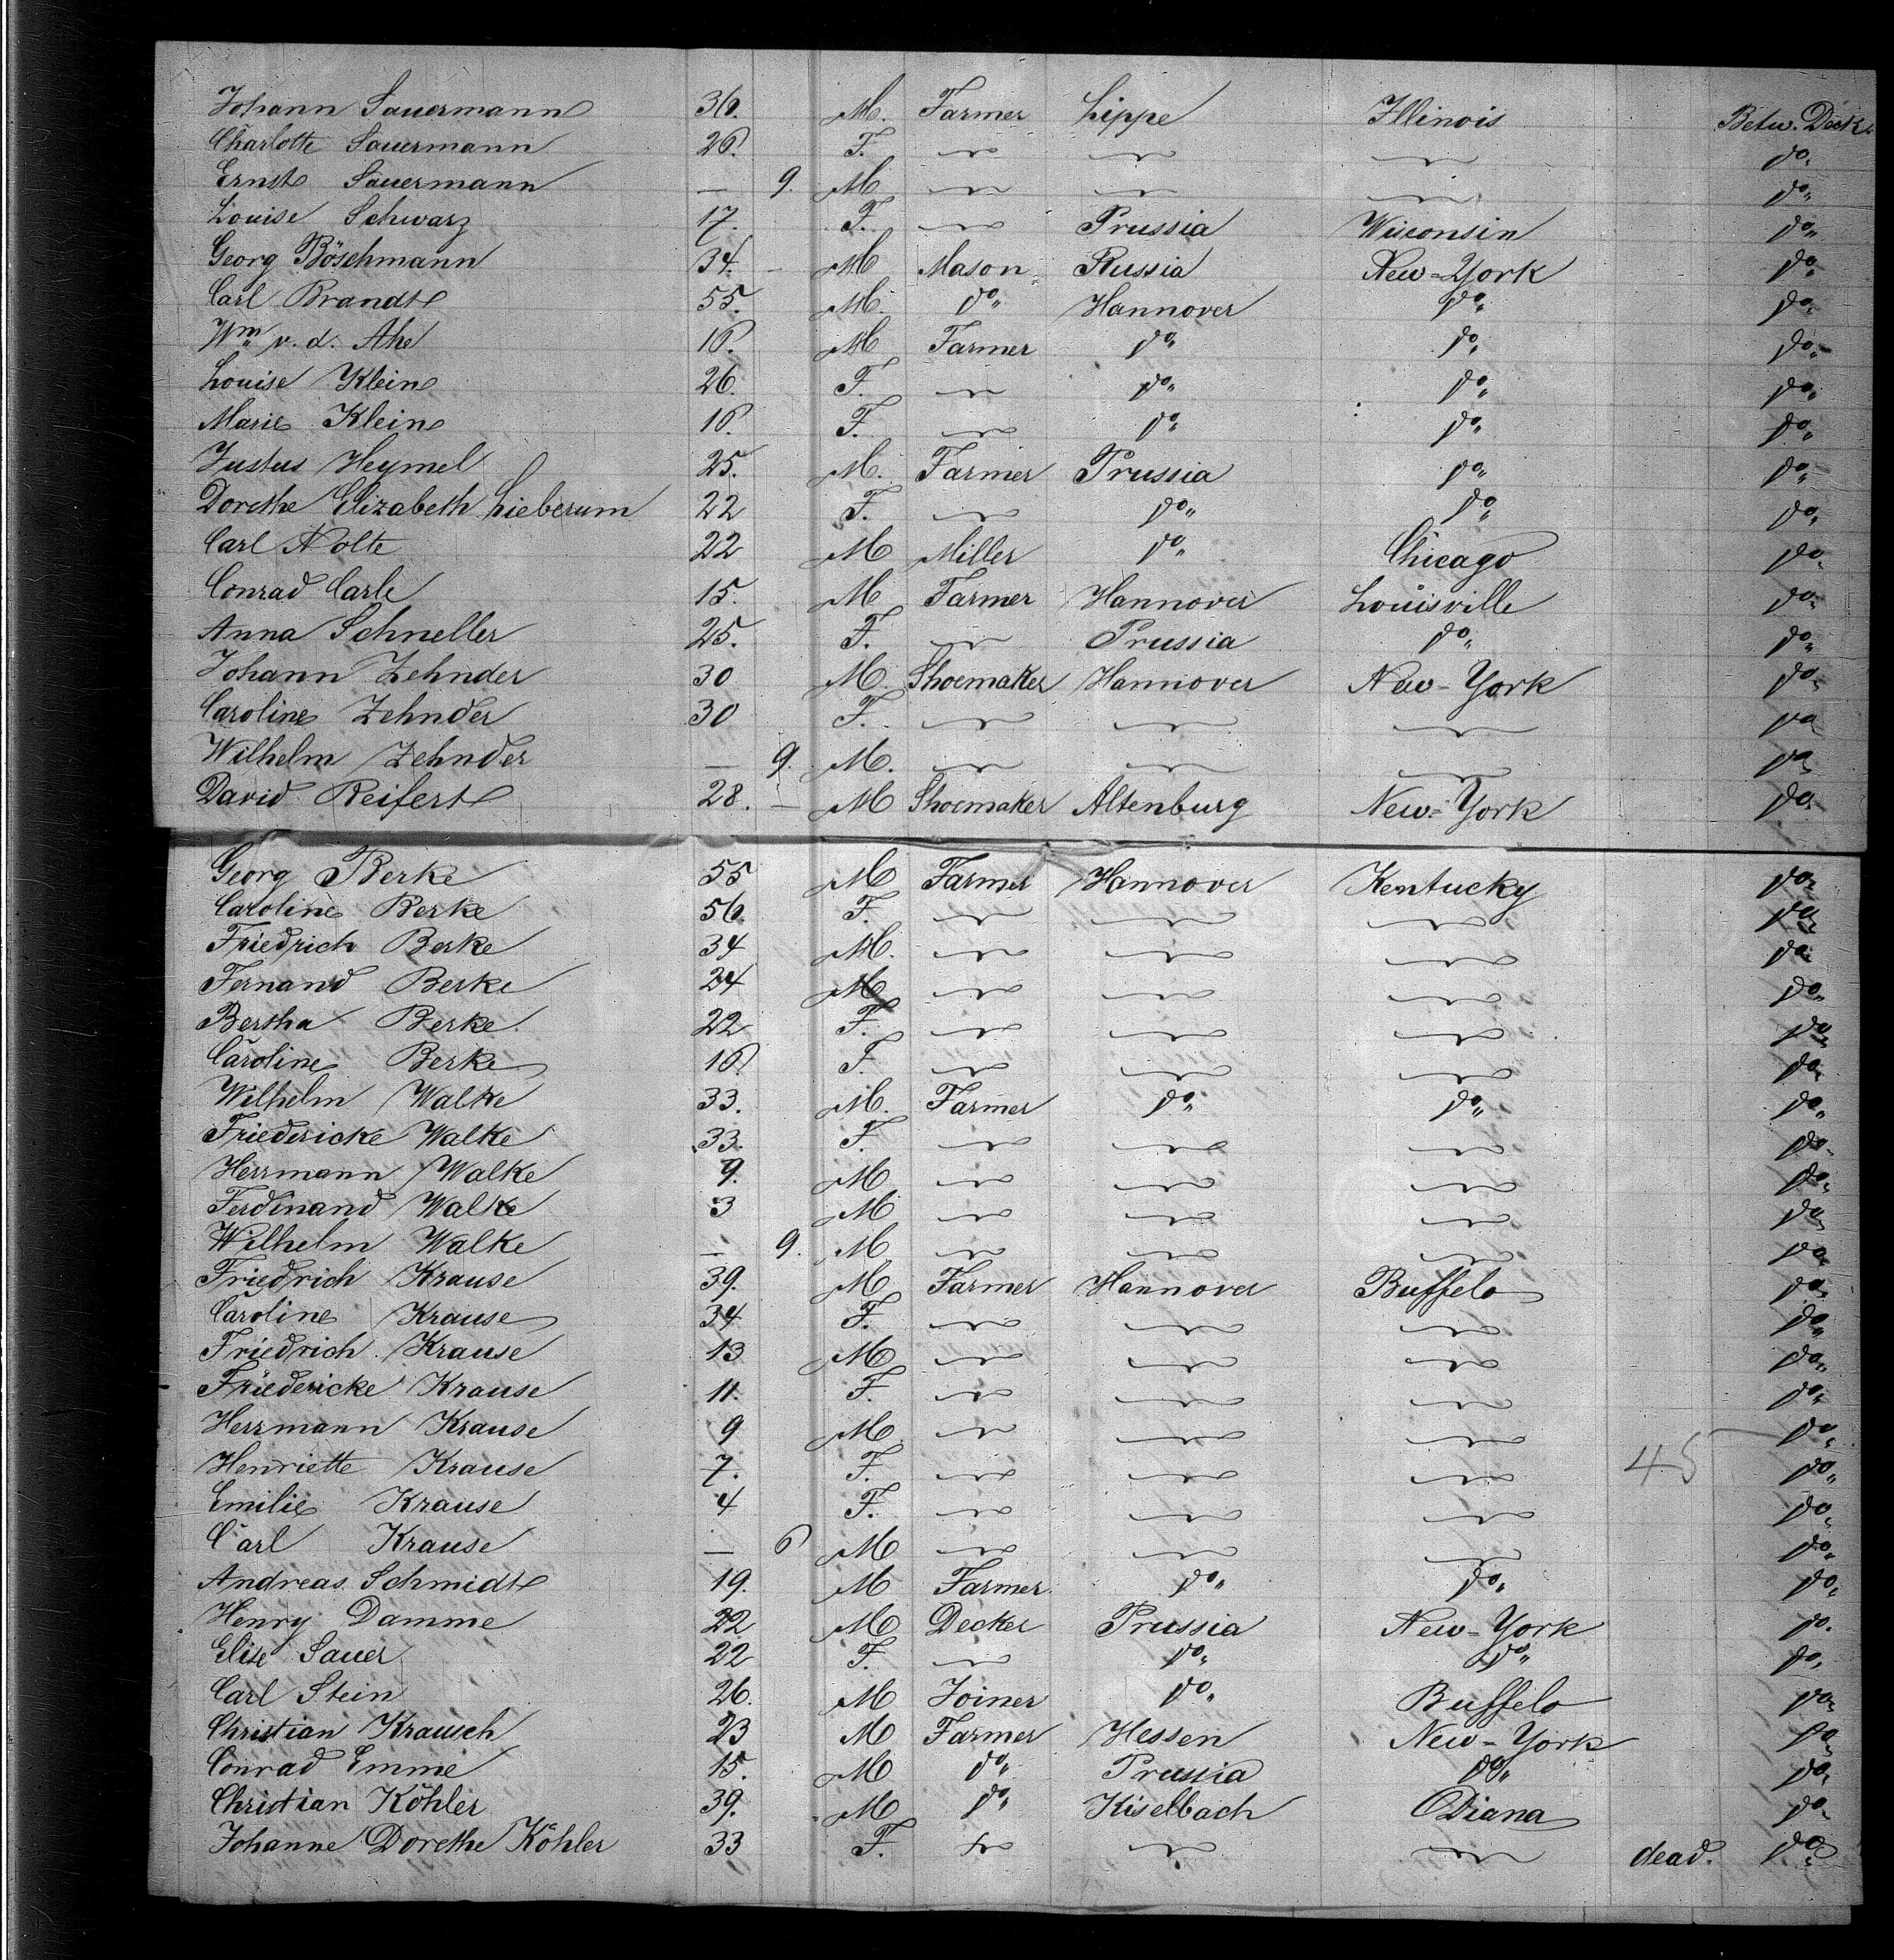 Johann Sauermann 36. M. Farmer Lippe Illinois Betw. Deck.
Charlotte Sauermann 26. F. do.
Ernst Sauermann — 9. M do.
Louise Schwarz 17. F. Prussia Wisconsin do.
Georg Böschmann 34. - M Mason Russia New-York do.
Carl Brandt 55. M. do. Hannover do. do.
Wm v. d. Ahe 16. M Farmer do. do. do.
Louise Klein 26. F. do. do. do.
Marie Klein 16. F. do. do. do.
Justus Heymel 25. M. Farmer Prussia do. do.
Dorethe Elizabeth Lieberum 22 F. do. do. do.
Carl Nolte 22 M Miller do. Chicago do.
Conrad Carle 15. M Farmer Hannover Louisville do.
Anna Schneller 25. F. Prussia do. do.
Johann Zehnder 30 M. Shoemaker Hannover New-York do.
Caroline Zehnder 30 F. do.
Wilhelm Zehnder — 9. M. do.
David Reifert 28. — M Shoemaker Altenburg New-York do.
Georg Berke 55 M Farmer Hannover Kentucky do.
Caroline Berke 56. F. do.
Friedrich Berke 34 M. do.
Fernand Berke 24 M do.
Bertha Berke. 22 F. do.
Caroline Berke 16. F. do.
Wilhelm Walke 33. M. Farmer do. do. do.
Friedericke Walke 33. F. do.
Herrmann Walke 9. M do.
Ferdinand Walke 3 M do.
Wilhelm Walke — 9. M do.
Friedrich Krause 39. M Farmer Hannover Buffelo do.
Caroline Krause 34 F. do.
Friedrich Krause 13 M do.
Friedericke Krause 11. F. do.
Herrmann Krause 9 M. do.
Henriette Krause 7. F. 45 do.
Emilie Krause 4 F. do.
Carl Krause — 6 M do.
Andreas Schmidt 19. M Farmer do. do. do.
Henry Damme 22 M Decker Prussia New-York do.
Elise Sauer 22 F. do. do. do.
Carl Stein 26. M Joiner do. Buffelo do.
Christian Krausch 23 M Farmer Hessen New-York do.
Conrad Emme 15. M do. Prussia do. do.
Christian Köhler 39. M do. Kiselbach Diana do.
Johanne Dorethe Köhler 33 F. dead. do.